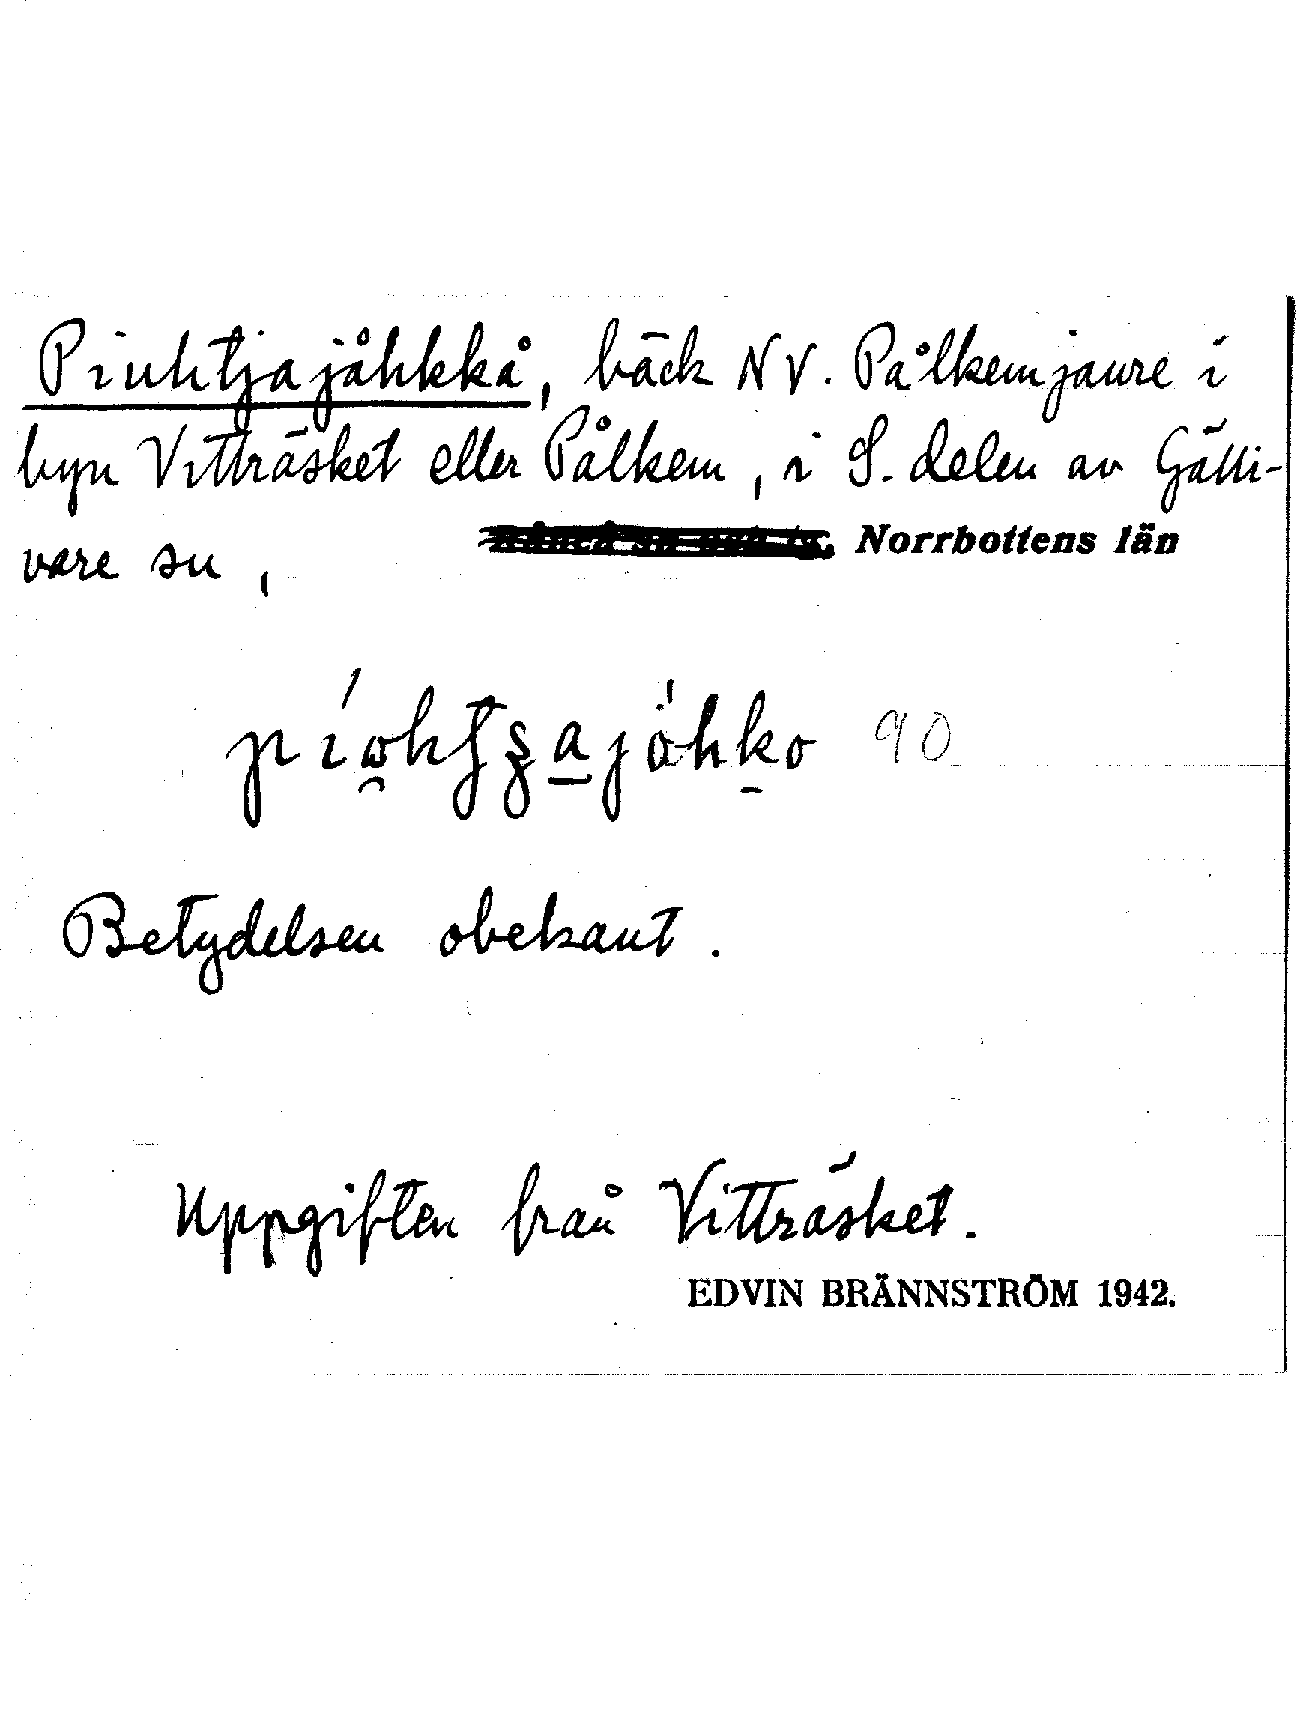 Piuhtjajåhkkå, bäck NV. Pålkemjaure i
byn Vitträsket eller Pålkem, i S. delen av Gälli-
vare sn, Norrbottens län
90
Betydelsen obekant.
Uppgiften från Vitträsket.
EDVIN BRÄNNSTRÖM 1942.